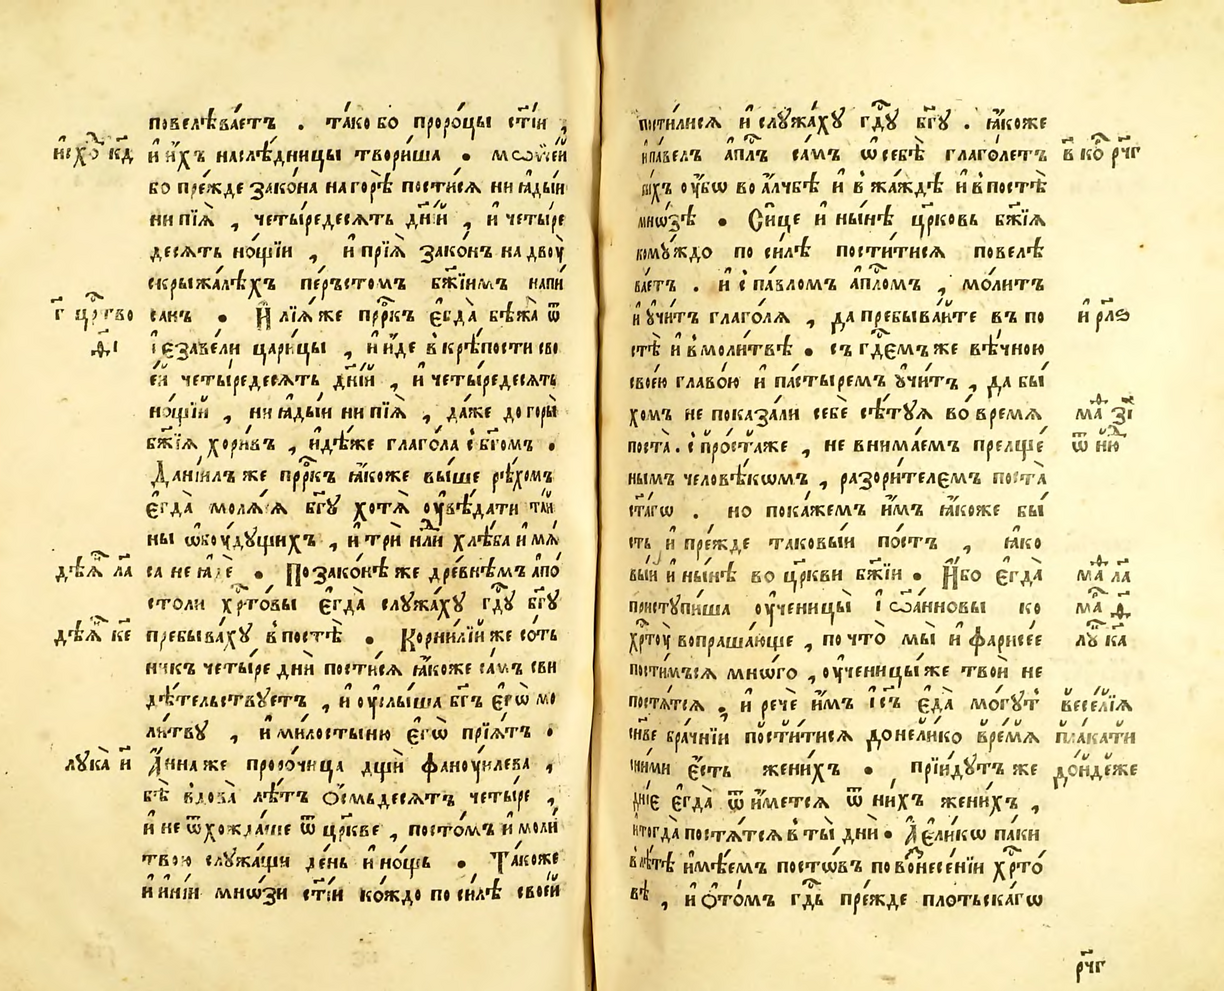 повелѣва́етъ . та́ко бо проро́цы ст҃і́и ,
и҆ и҆́хъ наслѣ́дницы твори́ша . мѡѷсе́й
исхо́ кд҃
бо пре́жде зако́на на горѣ̀ пости́ся ни ꙗ҆ды́и
ни пїѧ̀ , четы́редесѧть дн҃і́й , и҆ четы́ре
десѧть но́щїи , и҆ прїѧ̀ зако́нъ на двоꙋ̀
скрыжа́лѣхъ пе́рьстомъ бж҃їимъ напи
санъ . И҆лїѧ́ же прⷪ҇ркъ є҆гда̀ бѣжа̀ ѿ
г҃ црⷭ҇тво
ѳ҃і
і҆езаве́ли цари́цы , и҆ и҆́де в крѣ́пости сво
е́й четы́редесѧть дн҃і́й , и҆ четы́редесѧть
но́щїй , ни ꙗ҆ды́й ни пїѧ̀ , да́же до горы̀
бж҃їѧ хори́въ , и҆дѣ́же глаго́ла с̾ бг҃омъ .
Данїи́лъ же прⷪ҇ркъ ꙗ҆́коже вы́ше рѣ́хомъ
є҆гда̀ молѧ́сѧ бг҃ꙋ хотѧ̀ оу҆вѣ́дати тай
ны ѡ҆ боу́дꙋщихъ , и҆ трѝ нⷣли хлѣ́ба и҆ мѧ́
са не ꙗ҆дѐ . По зако́нѣ же дре́внѣмъ а҆по́
дѣѧ́ ла
столи хрⷭ҇то́вы є҆гда̀ слꙋжа́хꙋ гдⷭ҇ꙋ бг҃ꙋ
пребыва́хꙋ в̾ постѣ̀ . Корни́лїй же со́тъ
дѣѧ́ ке
никъ четы́ре дни̑ пости́сѧ ꙗ҆́коже са́мъ сви
дѣ́тельствꙋетъ , и҆ оу҆слы́ша бг҃ъ є҆гѡ̀ мо
ли́твꙋ , и҆ ми́лостыню є҆гѡ̀ прїѧ́тъ .
А҆́нна же проро́чица дщѝ фаноуи́лева ,
лꙋка̀ и҃
бѣ̀ вдова̀ лѣ́тъ ѻ҆́смьдесѧтъ четы́ре ,
и҆ не ѿхожда́ше ѿ цр҃кве , посто́мъ и҆ моли́
твою слꙋжа́щи де́нь и҆ но́щь . Та́коже
и҆ и҆ні́и мнѡ́зи ст҃і́и ко́ждо по си́лѣ свое́й
пости́лисѧ и҆ слꙋжа́хꙋ гдⷭ҇ꙋ бг҃ꙋ . ꙗ҆́коже
и҆ па́велъ а҆пⷭ҇лъ са́мъ ѡ҆ себѣ̀ глаго́летъ
в҃ ко́ рчг
оу҆́бѡ во а҆́лчбѣ и҆ в̾ жа́ждѣ и҆ в̾ постѣ̀
мно́зѣ . Си́це и҆ ны́нѣ цр҃ковь бж҃їѧ
комꙋ́ждо по си́лѣ пости́тисѧ повелѣ
ва́етъ . и҆ с̾ па́вломъ а҆пⷭ҇ломъ , мо́литъ
и҆ оу҆чи́тъ глаго́лѧ , да пребыва́йте въ по
и҆ рл҃ѕ
стѣ̀ и҆ в̾ моли́твѣ . съ гдⷭ҇емъ же вѣ́чною
свое́ю главо́ю и҆ па́стыремъ оу҆чи́тъ , да бы́
хомъ не показа́ли себѐ сѣ́тꙋѧ во вре́мѧ
маⷴ҇ зі҃
поста̀ . с̾ про́ста же , не внима́емъ преле́ще
ѿ нⷣю
нымъ человѣ́кѡмъ , разори́телемъ поста̀
ст҃а́гѡ . но пока́жемъ и҆́мъ ꙗ҆́коже бы́
сть и҆ пре́жде таковы́и по́стъ , ꙗ҆ко
вы́и и҆ ны́нѣ во цр҃кви бж҃їи . И҆́бо є҆гда̀
маⷴ҇ ла
приступи́ша оу҆ченицы̀ і҆ѡа́нновы ко
маⷴ҇ ѳ҃
хрⷭ҇тоу̀ вопраша́юще , по что̀ мы̀ и҆ фарисе́е
лꙋ́ ка
пости́мъсѧ мно́го , оу҆ченицы́ же твои̑ не
постѧ́тсѧ . и҆ речѐ и҆́мъ і҆с҃ъ є҆да̀ мо́гꙋт
весе́лїѧ
сн҃ве бра́чнїи пости́тисѧ доне́лико вре́мѧ
пла́кати
с ни́ми є҆́сть жени́хъ . прїи́дꙋтъ же
до́ндеже
дні́е є҆гда̀ ѿи́метсѧ ѿ ни́хъ жени́хъ ,
и҆ тогда̀ постѧ́тсѧ в̾ ты́ѧ дни̑ . А҆ є҆ли́кѡ па́ки
в̾ лѣ́тѣ и҆мѣ́емъ посто́въ по вознесе́нїи хрⷭ҇то́
вѣ , и҆ ѻ҆ то́мъ гдⷭ҇ь пре́жде пло́тьскагѡ
рч҃г